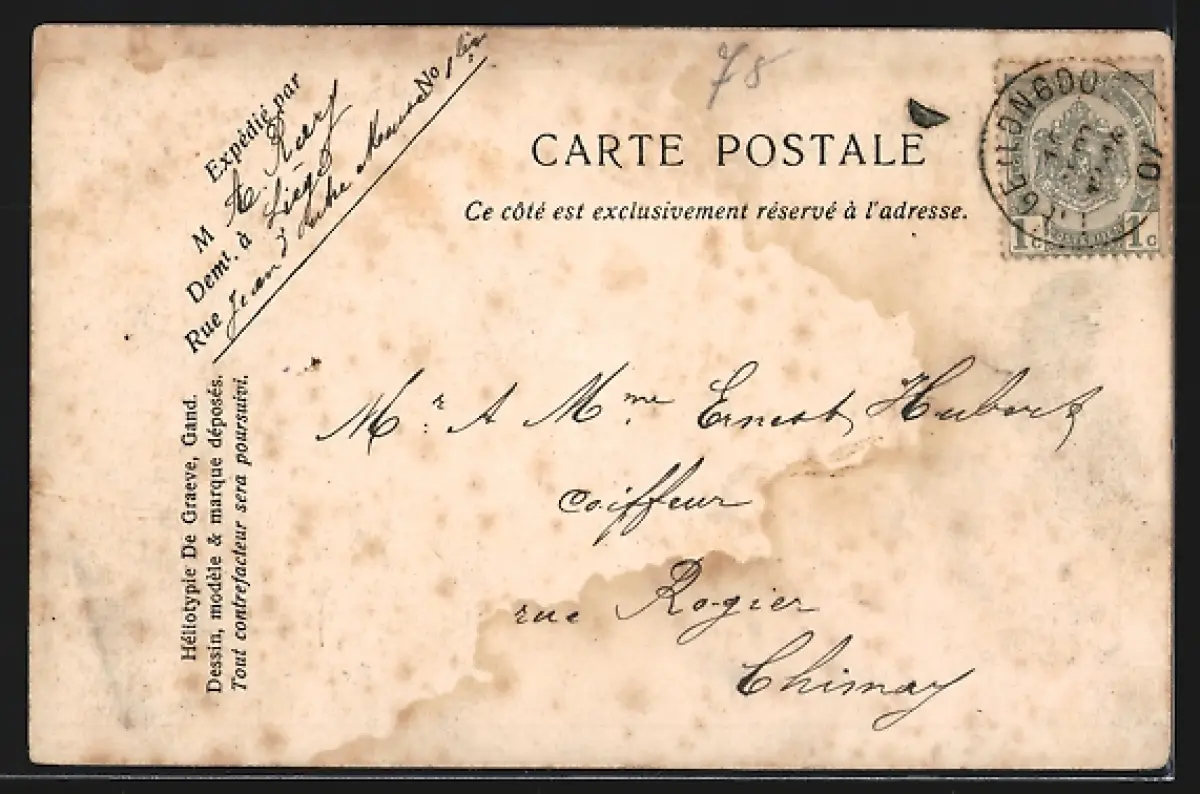 78
Expédié par
M A.
Demt. à Liège
Rue Jean d'Outre Meuse No 1bis
CARTE POSTALE
Ce côté est exclusivement réservé à l'adresse.
1c 1c
Mr. A Mme Ernest Hubert
coiffeur
rue Rogier
Chimay
Héliotypie De Graeve, Gand.
Dessin, modèle & marque déposés.
Tout contrefacteur sera poursuivi.